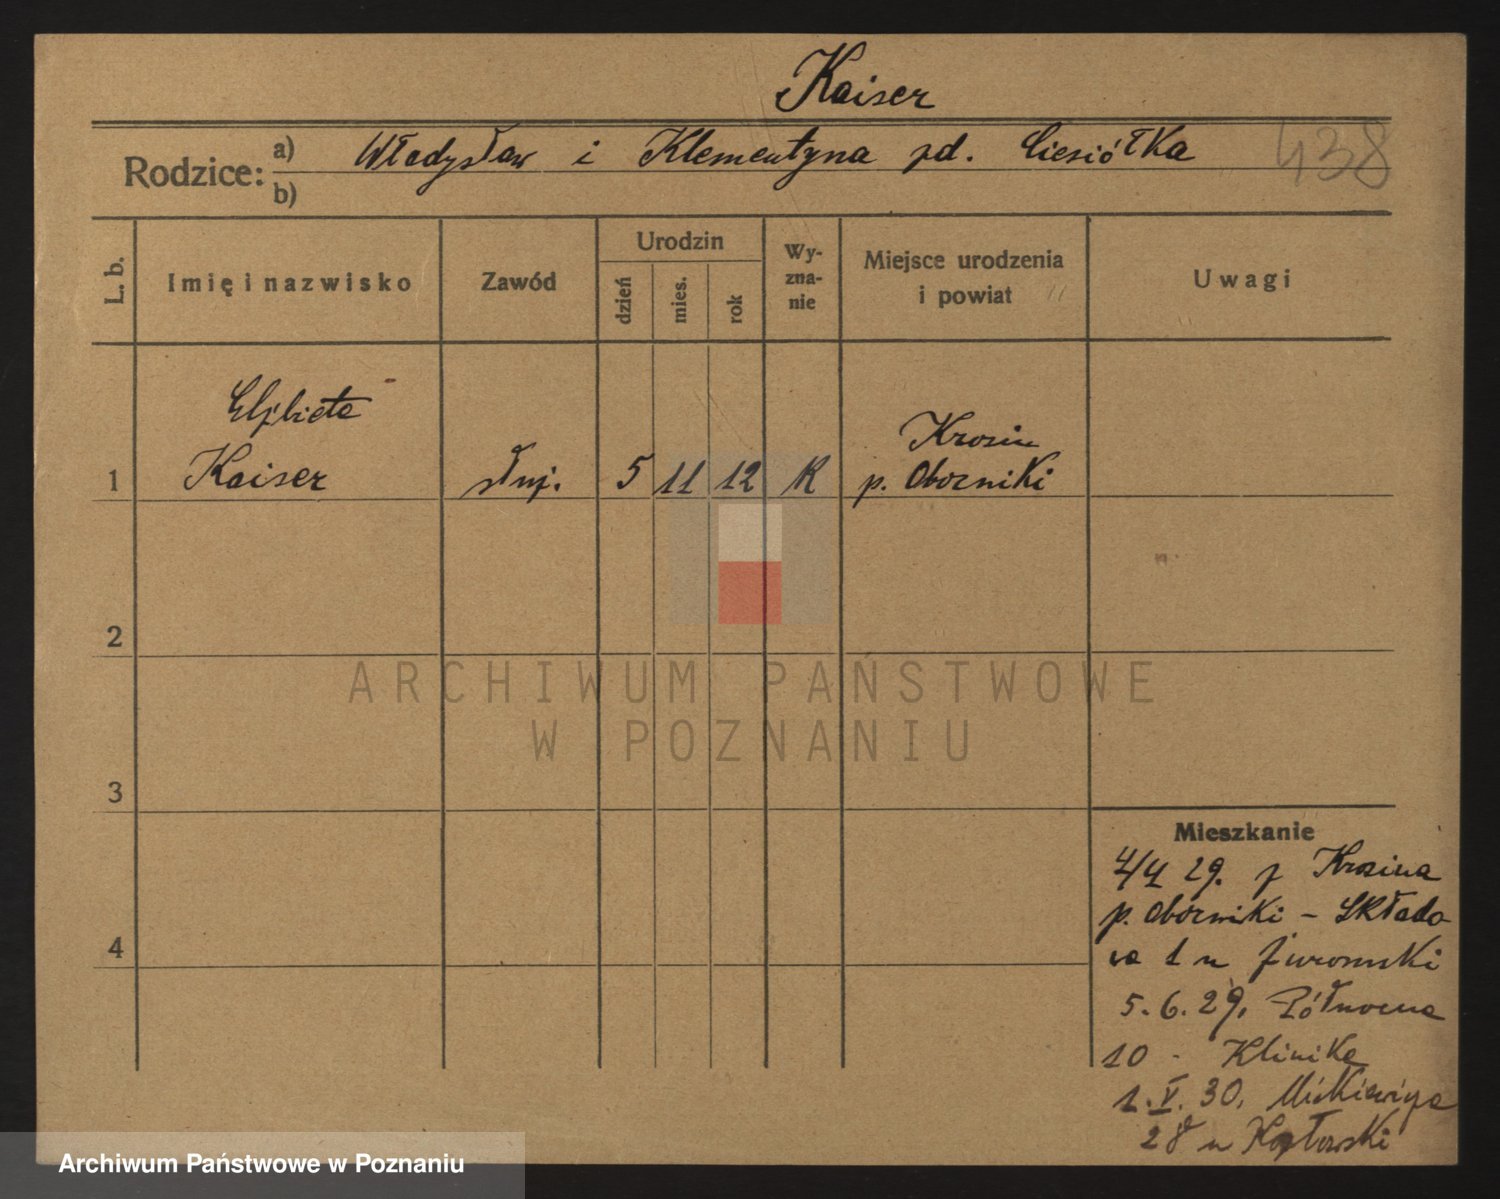 Kaiser
Rodzice: a) Władysław i Klementyna pd. Ciesiółka 438
b)
L. b. Imię i nazwisko Zawód Urodzin dzień mies. rok Wyznanie Miejsce urodzenia i powiat Uwagi
Elżbieta Krosin
1 Kaiser służ. 5 11 12 K p. Oborniki
2
ARCHIWUM PAŃSTWOWE
W POZNANIU
3
Mieszkanie
4/4 29. z Krosina
p. Oborniki - Składo-
4
wa 1 u
5. 6. 29. Północna
10 - Klinika
1. V. 30. Mickiewicza
28 u Kozłowski
Archiwum Państwowe w Poznaniu